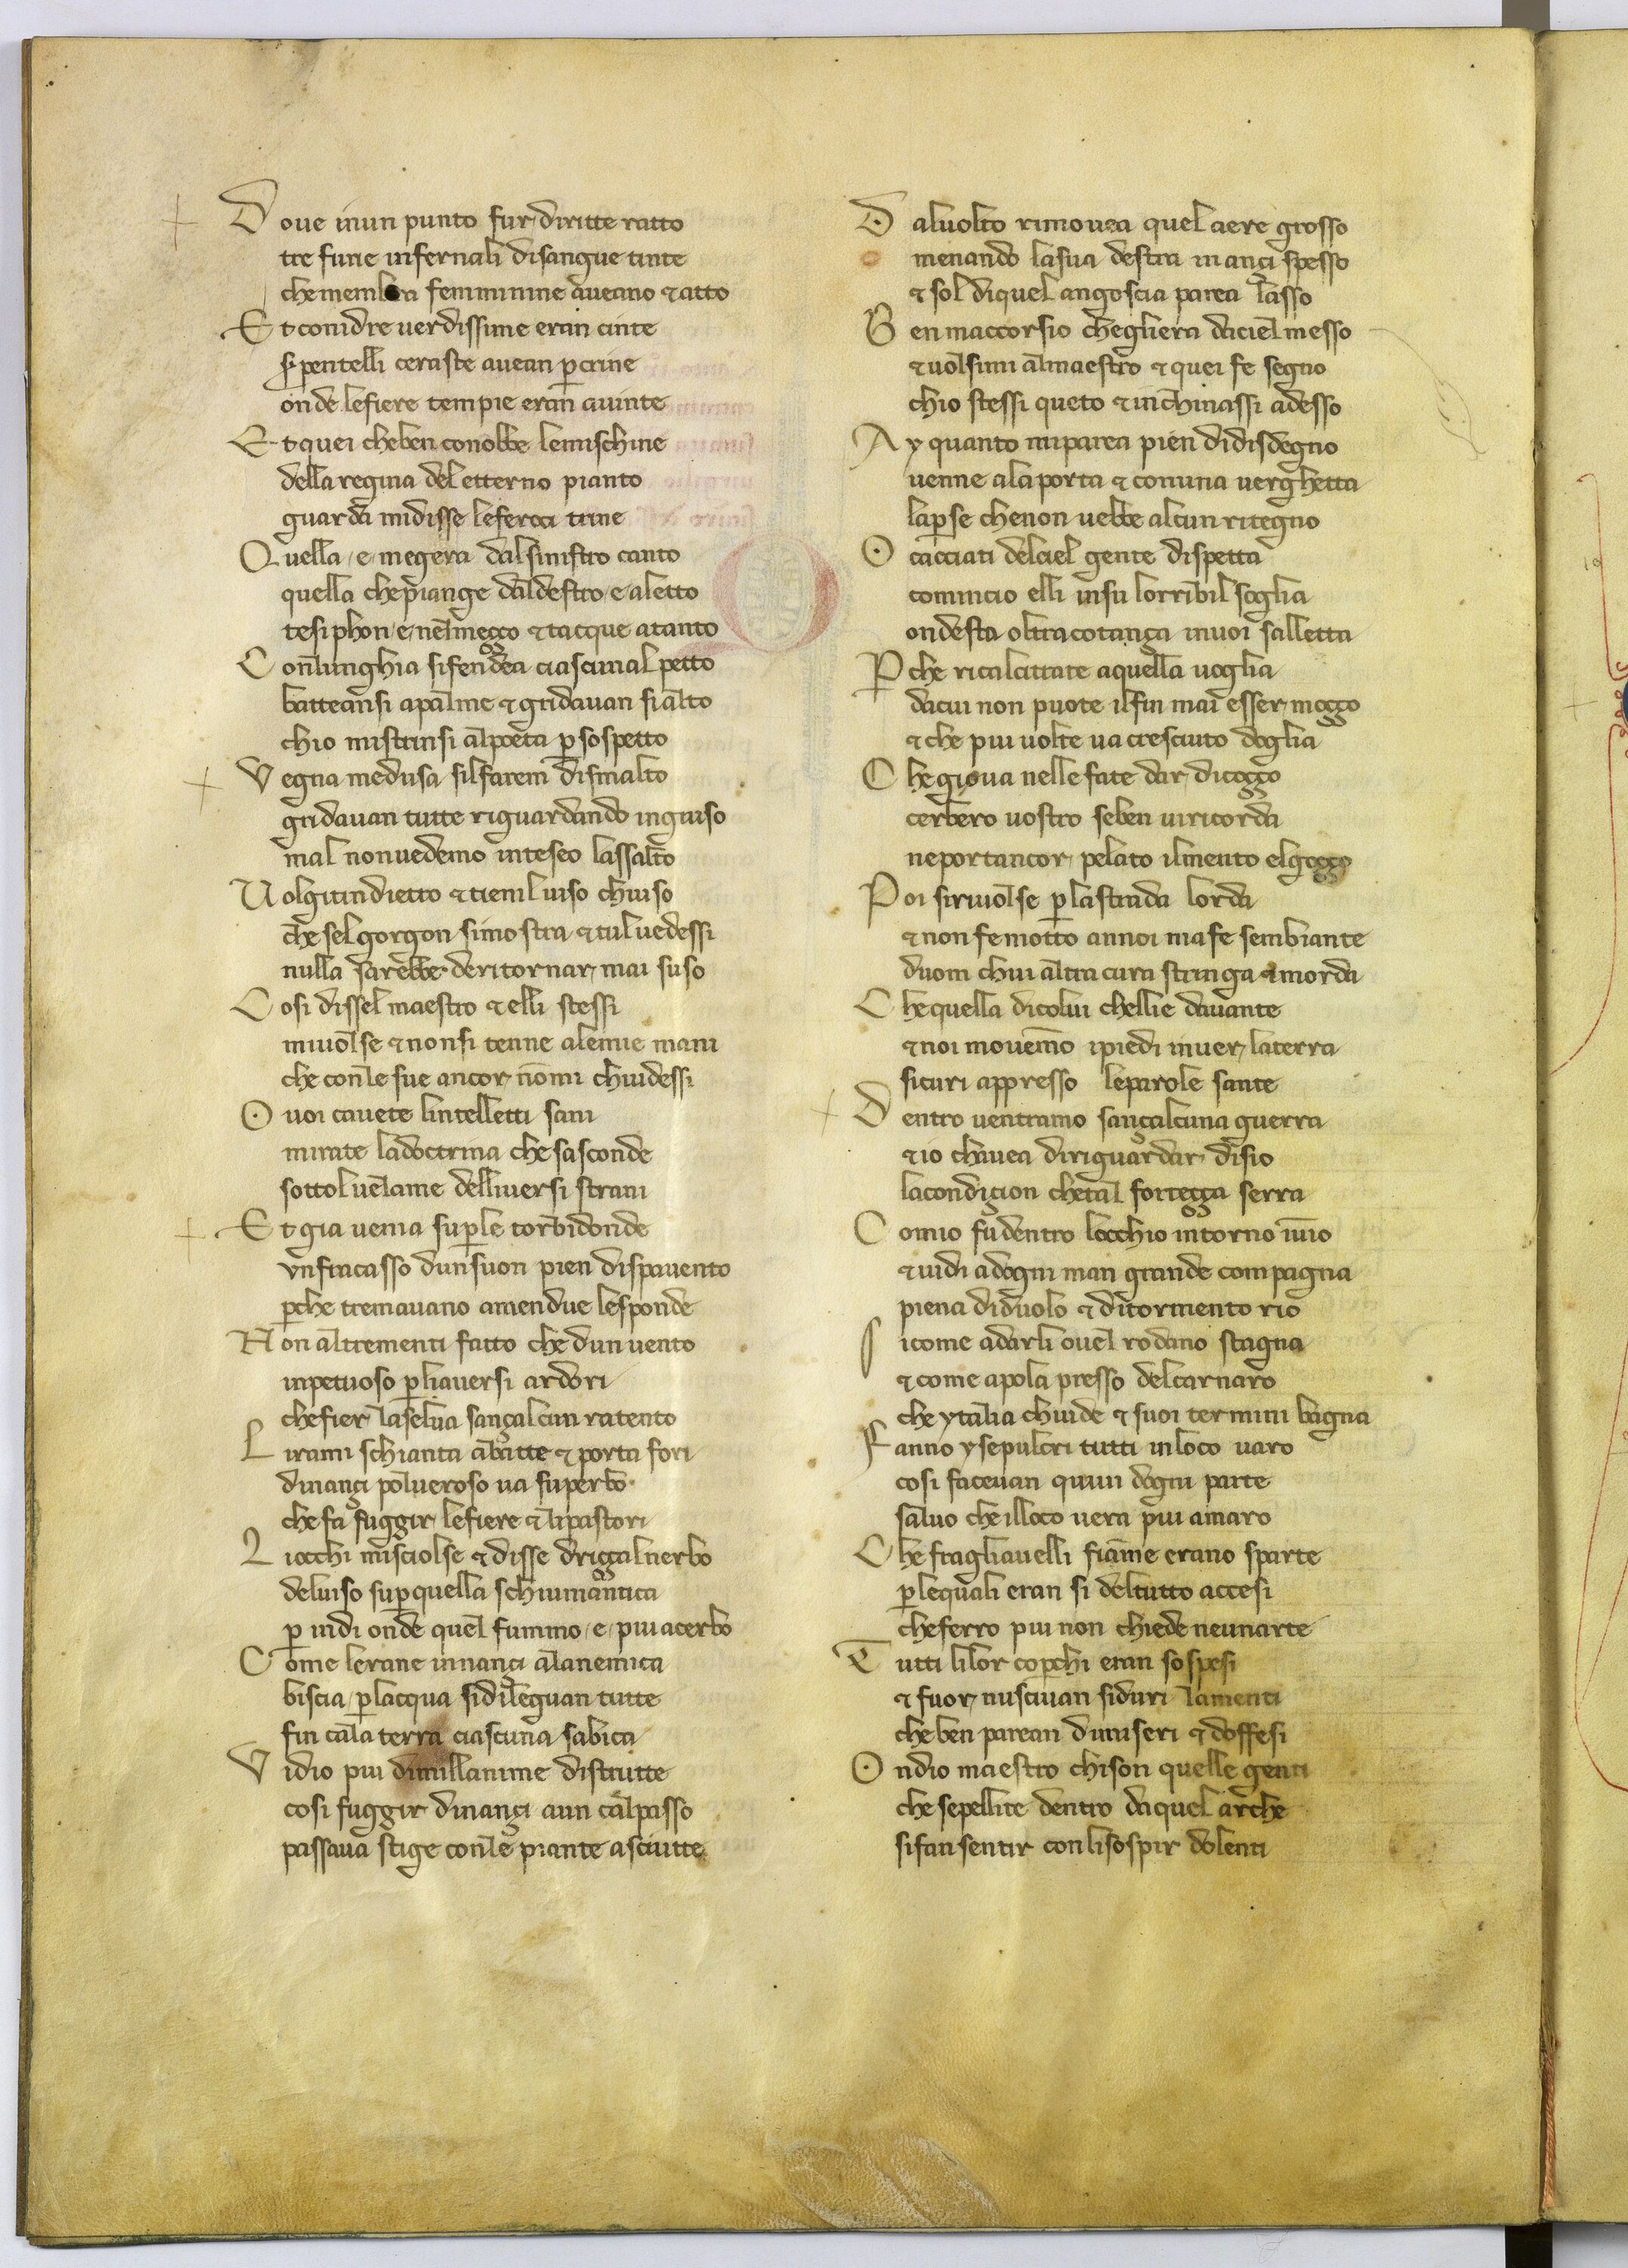 Doue inun punto fur diritte ratto
tre furie infernali disangue tinte
che membra feminine aueano ⁊ atto
Et conidre uerdissime eran cinte
Spentelli ceraste auean p crine
onde lefiere tempie eran auinte
Et quei cheben conobbe lemischine
della regina del etterno pianto
guarda midisse leferoci trine
Quella e megera dalsinistro canto
quella chepiange daldestro e aletto
tesiphon e nelmeço ⁊ tacque atanto
Conlunghia sifendea ciascunal petto
batteansi apalme ⁊ gridauan sialto
chio mistrinsi alpoeta p sospetto
Vegna medusa silfarem dismalto
gridauan tutte riguardando ingiuso
mal nonuedemo inteseo lassalto
Volgitindietro ⁊ tienil uiso chiuso
che sel gorgon simostra ⁊ tul uedessi
nulla sarebbe deritornar mai suso
Cosi dissel maestro ⁊ elli stessi
miuolse ⁊ nonsi tenne alemie mani
che conle sue ancor nomi chiudessi
O uoi cauete lintelletti sani
mirate ladoctrina che sasconde
sottol uelame delliuersi strani
Et gia uenia suple torbidonde
vnfracasso dunsuon pien dispauento
pche tremauano amendue lesponde
Non altrementi fatto che dun uento
inpetuoso p liauersi ardori
chefier laselua sançalcun ratento
Lirami schianta abatte ⁊ porta fori
dinançi polueroso ua superbo
che fa fuggir lefiere ⁊ lipastori
Liocchi misciolse ⁊ disse driççalnerbo
deluiso sup quella schiumantica
p indi onde quel fummo e piu acerbo
Come lerane innançi alanemica
biscia placqua sidileguan tutte
fin cala terra ciascuna sabica
Vidio piu dimillanime distrutte
cosi fuggir dinançi aun calpasso
passaua stige conle piante asciutte
Daluolto rimouea quel aere grosso
menando lasua destra inançi spesso
⁊ sol diquel angoscia parea lasso
Ben maccorsio chegliera daciel messo
⁊ uolsimi almaestro ⁊ quei fe segno
chio stessi queto ⁊ inchinassi adesso
Ay quanto miparea pien didisdegno
uenne ala porta ⁊ conuna uerghetta
lapse chenon uebbe alcun ritegno
O cacciati delciel gente dispetta
comincio elli insu lorribil soglia
ondesta oltracotança inuoi salletta
Pche ricalcitrate aquella uoglia
dacui non puote ilfin mai esser moçço
⁊ che piu uolte ua cresciuto doglia
Che gioua nelle fate dar dicoçço
cerbero uostro seben uiricorda
neportancor pelato ilmento elgoçço
Poi siriuolse p lastrada lorda
⁊ non femotto annoi mafe sembiante
duom chui altra cura stringa ⁊ morda
Che quella dicolui chellie dauante
⁊ noi mouemo ipiedi inuer laterra
sicuri appresso leparole sante
Dentro uentramo sançalcuna guerra
⁊ io chauea diriguardar disio
lacondiçion chetal forteçça serra
Comio fudentro locchio intorno inuio
⁊ uidi adogni man grande compagna
piena diduolo ⁊ ditormento rio
Sicome adarli ouel rodano stagna
⁊ come apola presso delcarnaro
che ytalia chiude ⁊ suoi termini bagna
Fanno ysepulcri tutti inloco uaro
cosi faceuan quiui dogni parte
saluo che illoco uera piu amaro
Che fragliauelli fiamme erano sparte
p lequali eran si deltutto accesi
cheferro piu non chiede neunarte
Tutti lilor copchi eran sospesi
⁊ fuor nusciuan siduri lamenti
che ben parean dimiseri ⁊ doffesi
Ondio maestro chison quelle genti
che sepellite dentro daquel arche
sifan sentir conlisospir dolenti